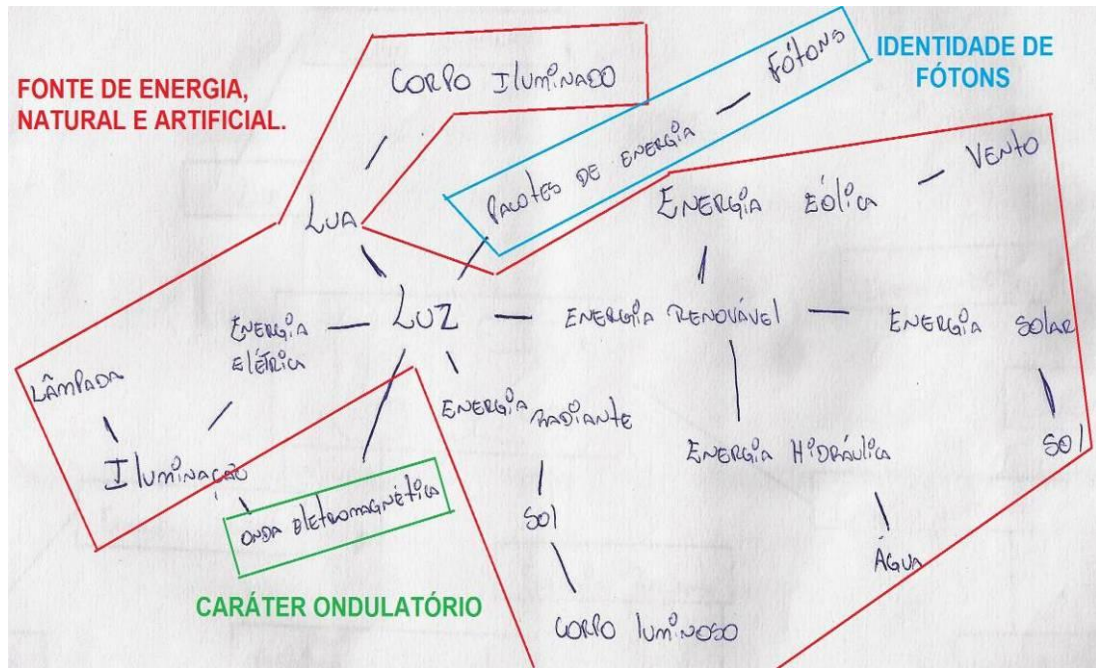 FONTE DE ENERGIA,
NATURAL E ARTIFICIAL.
IDENTIDADE DE
FÓTONS
CORPO ILUMINADO
FÓTONS
PACOTES DE ENERGIA
VENTO
ENERGIA EÓLICA
LUA
LUZ
ENERGIA RENOVÁVEL
ENERGIA SOLAR
ENERGIA
ELÉTRICA
LÂMPADA
ENERGIA RADIANTE
ENERGIA HIDRÁULICA
SOL
ILUMINAÇÃO
ONDA ELETROMAGNÉTICA
SOL
ÁGUA
CARÁTER ONDULATÓRIO
CORPO LUMINOSO